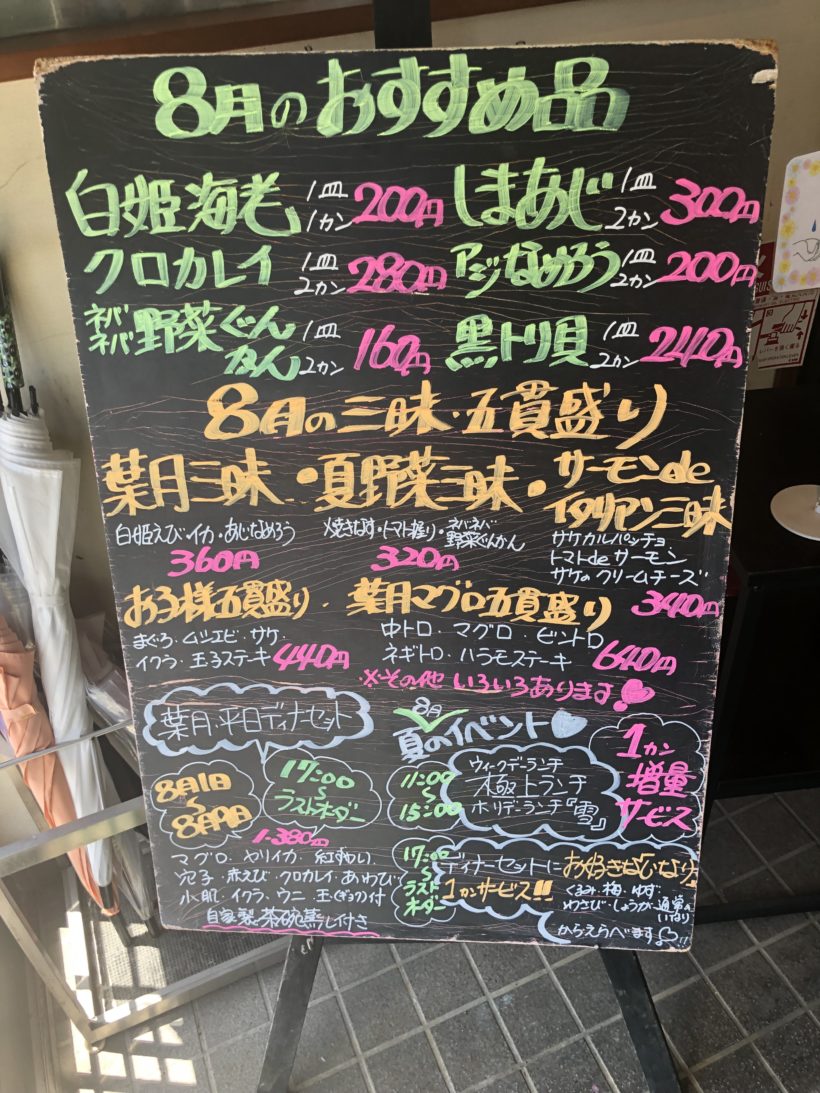 8月のおすすめ品
白姫海老 1皿 1カン 200円
しまあじ 1皿 2カン 300円
クロカレイ 1皿 2カン 280円
アジなめろう 1皿 2カン 200円
ネバネバ野菜ぐんかん 1皿 2カン 160円
黒トリ貝 1皿 2カン 240円
8月の三昧・五貫盛り
葉月三昧・夏野菜三昧・サーモンde
イタリアン三昧
白姫えび・イカ・あじなめろう
360円
焼きなす・トマト握り・ネバネバ
野菜ぐんかん
320円
サケカルパッチョ
トマトdeサーモン
サケのクリームチーズ
340円
お子様五貫盛り・葉月マグロ五貫盛り
まぐろ・ムシエビ・サケ・
イクラ・玉子ステーキ 440円
中トロ・マグロ・ビントロ
ネギトロ・ハラモステーキ 640円
※その他いろいろあります
葉月・平日ディナーセット
8月1日
〜
8月9日
17:00
〜
ラストオーダー
1.380円
マグロ・ヤリイカ・紅ずわい
穴子・赤えび・クロカレイ・あわび
小肌・イクラ・ウニ・玉(ぎょく)付
自家製茶碗蒸し付き
8月
夏のイベント
11:00
〜
15:00
ウィークデーランチ
極上ランチ
ホリデーランチ『雪』
1カン
増量
サービス
17:00
〜
ラスト
オーダー
ディナーセットにお好きないなり
1カンサービス!!
くるみ・梅・ゆず・
わさび・しょうが・通常の
いなり
からえらべます♪!!